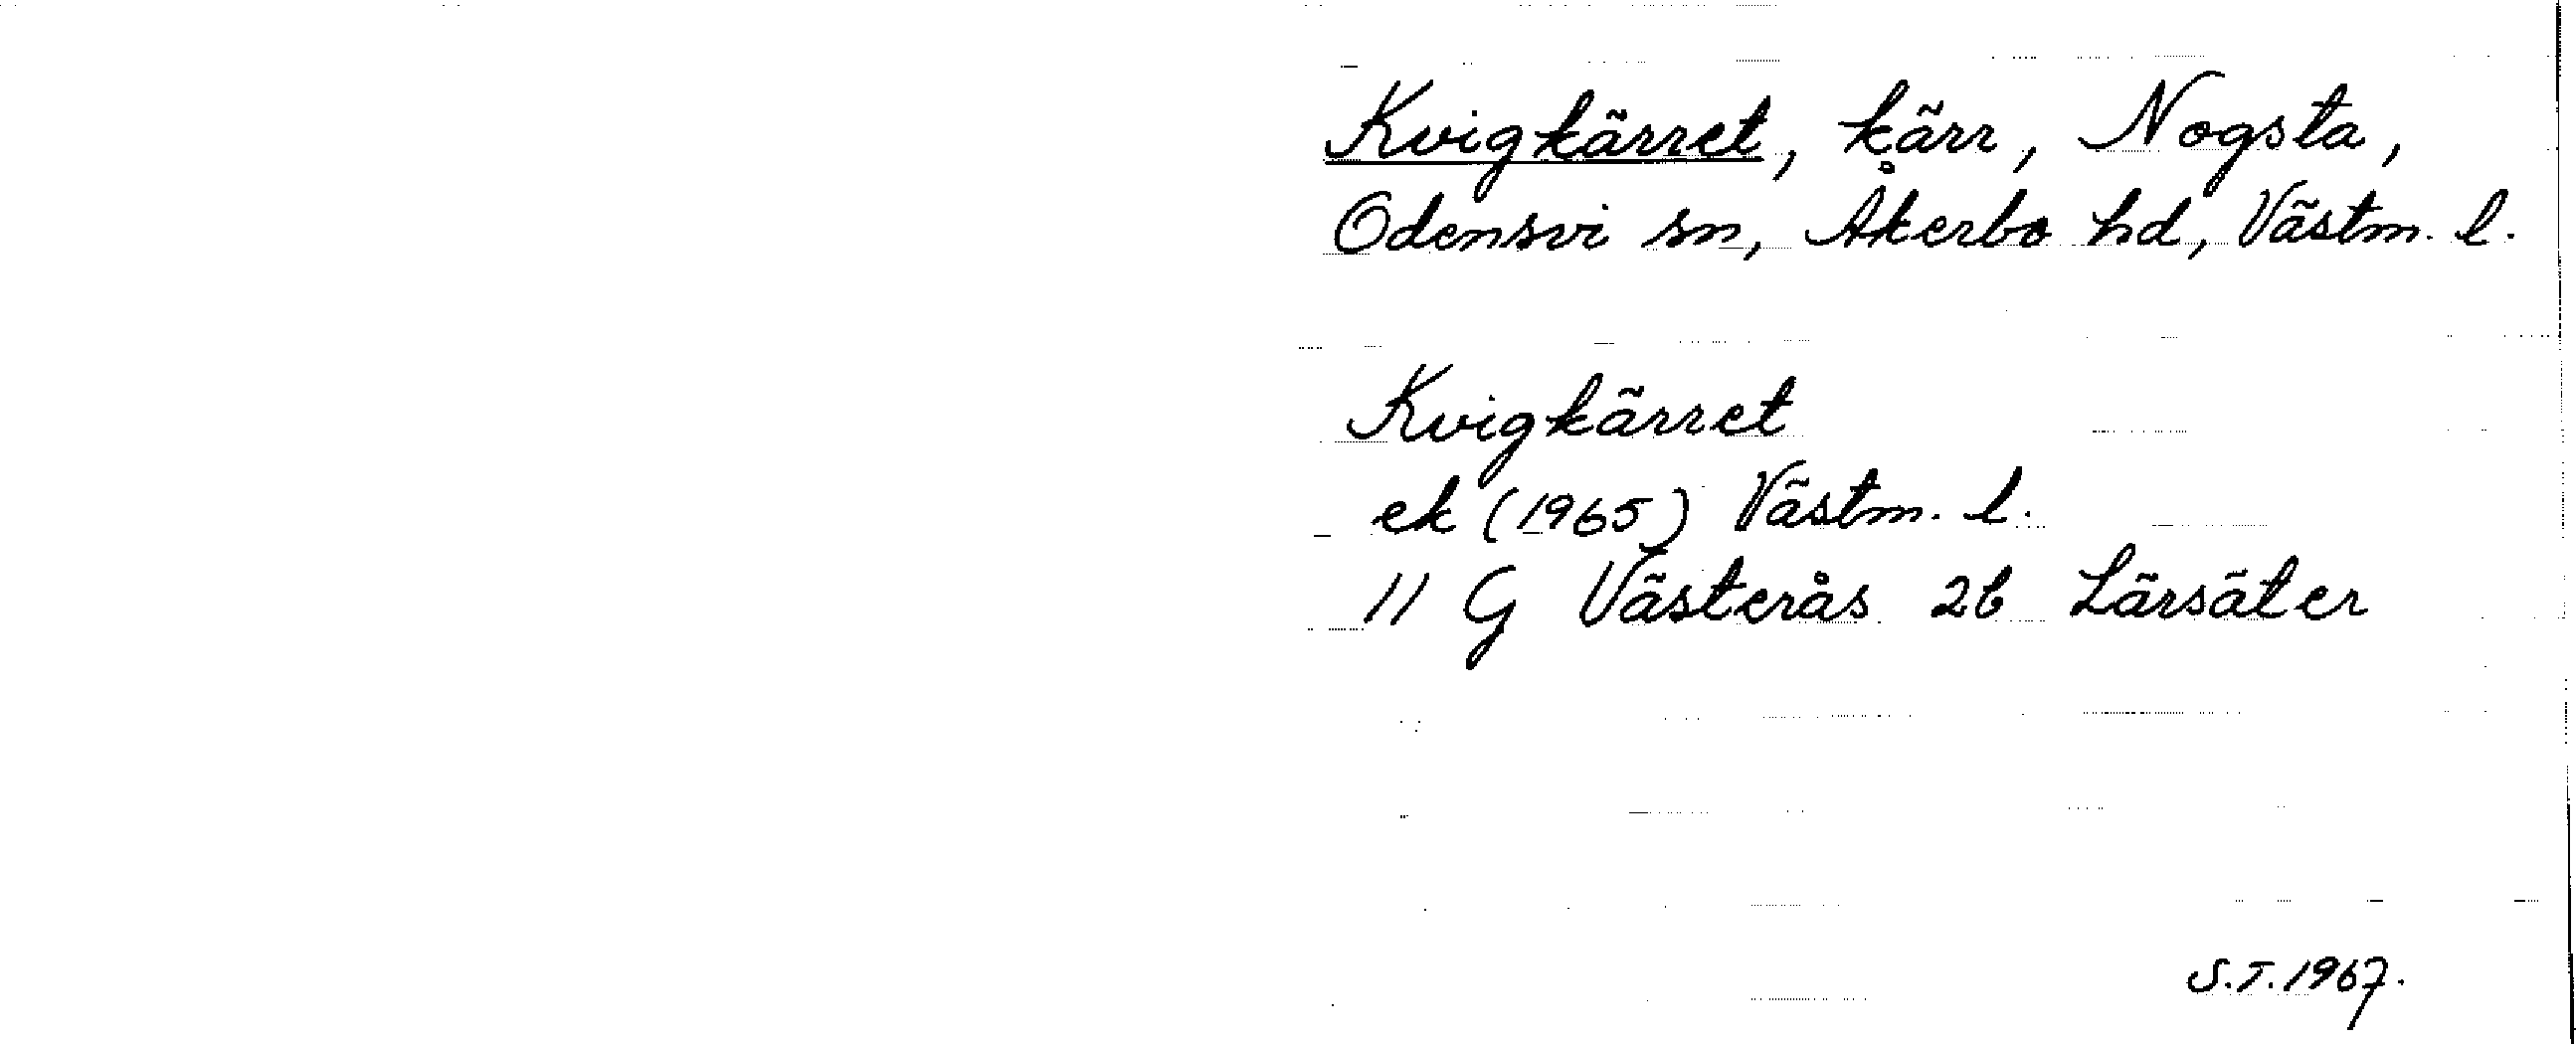 Kvigkärret, kärr, Nogsta,
Odensvi sn, Åkerbo hd, Västm. l.
Kvigkärret
ek (1965) Västm. l.
11 G Västerås 2b Lärsäter
S.T. 1967.